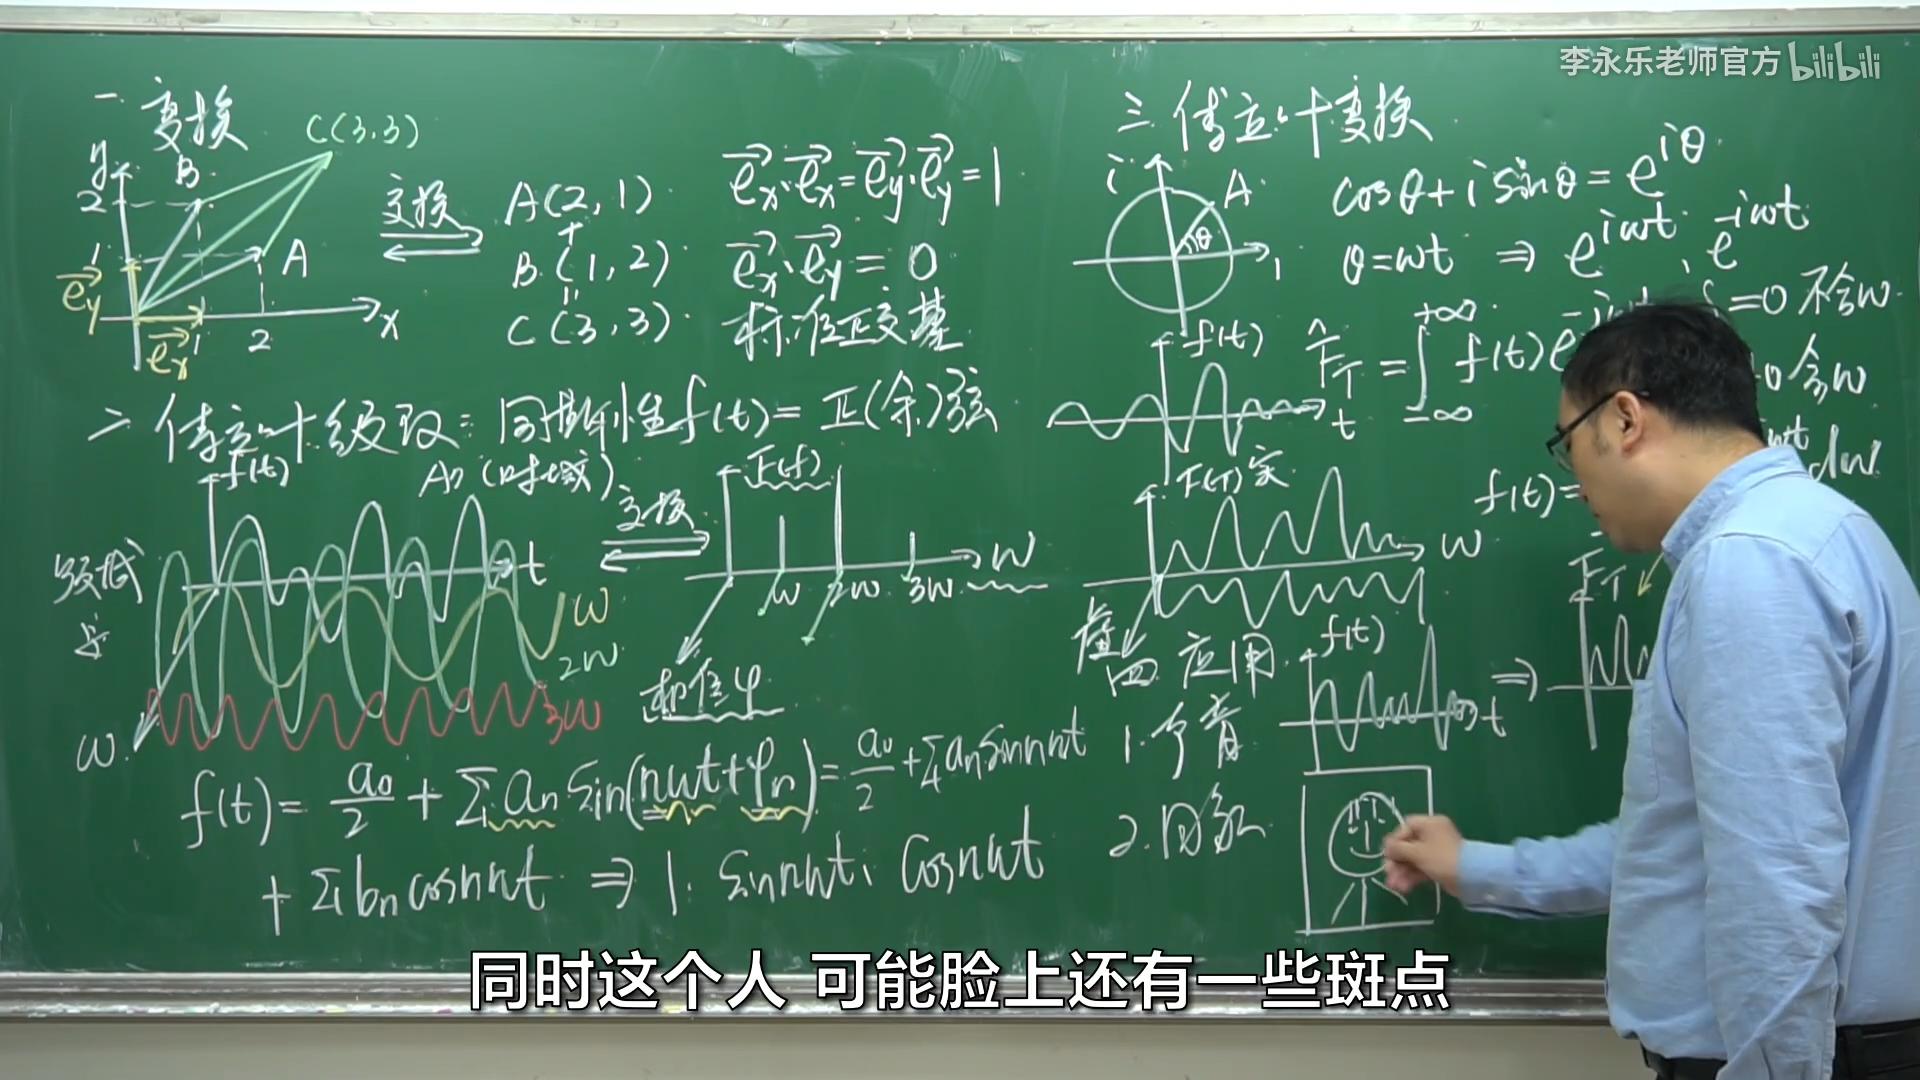 李永乐老师官方 bilibili
一 变换
C(3,3)
y
B
2
1
A
e⃗y
e⃗x
1
2
x
变换
A(2,1)
+
B(1,2)
=
C(3,3)
e⃗x·e⃗x=e⃗y·e⃗y=1
e⃗x·e⃗y=0
标准正交基
二 傅立叶级数：周期性f(t)=正(余)弦
f(t)
(时域)
t
ω
2ω
3ω
ω
变换
F(f)
ω
2ω
3ω
ω
相位φ
f(t)=a₀/2+Σaₙsin(nωt+φₙ)=a₀/2+Σaₙsinnωt
+Σbₙcosnωt ⇒ 1. sinnωt、cosnωt
三 傅立叶变换
i
A
θ
1
cosθ+isinθ=e^{iθ}
θ=ωt ⇒ e^{iωt} e^{-iωt}
=0 不含ω
f(t)
t
F̂_T=∫_{-∞}^{+∞}f(t)e
0 含ω
f(t)=
dω
F(T)实
ω
虚
四 应用
f(t)
t
⇒
F_T
1.
2. 图象
同时这个人 可能脸上还有一些斑点